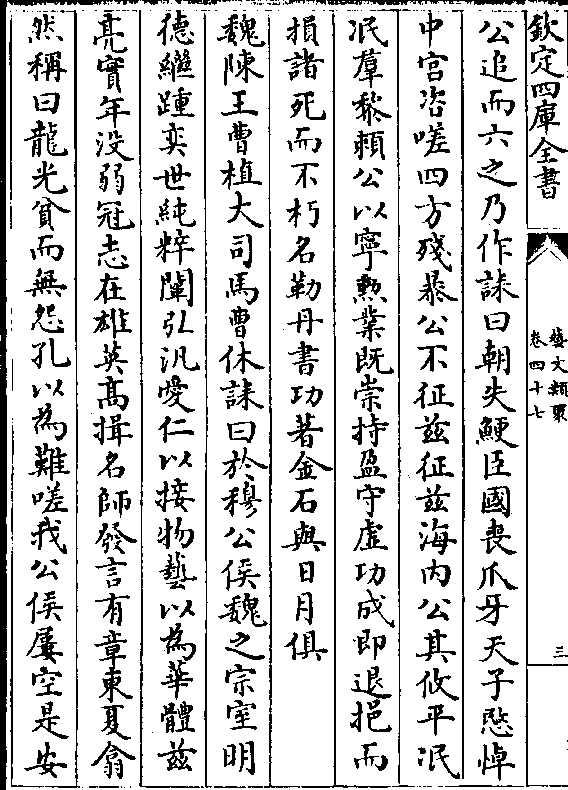 欽定四庫全書
藝文類聚
卷四十七
三
公追而六之乃作誄曰朝失鯁臣國喪爪牙天子愍悼
中宫咨嗟四方殘暴公不征兹征兹海内公其攸平泯
泯羣黎賴公以寧勲業既崇持盈守虚功成即退挹而
損諸死而不朽名勒丹書功著金石與日月俱
魏陳王曹植大司馬曹休誄曰於穆公侯魏之宗室明
德繼踵奕世純粹闡弘汎愛仁以接物藝以為華體兹
亮實年没弱冠志在雄英髙揖名師發言有章東夏翕
然稱曰龍光貧而無怨孔以為難嗟我公侯屢空是安